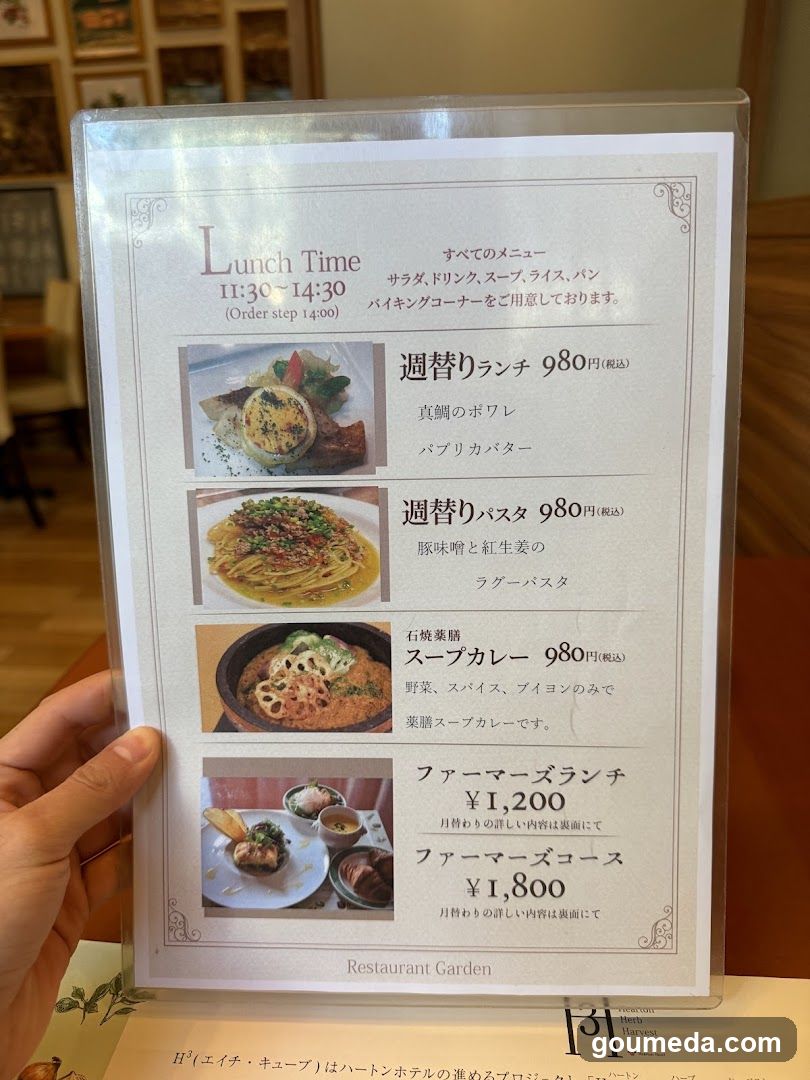 Lunch Time
11:30~14:30
(Order step 14:00)
すべてのメニュー
サラダ、ドリンク、スープ、ライス、パン
バイキングコーナーをご用意しております。
週替りランチ 980円(税込)
真鯛のポワレ
パプリカバター
週替りパスタ 980円(税込)
豚味噌と紅生姜の
ラグーパスタ
石焼薬膳
スープカレー 980円(税込)
野菜、スパイス、ブイヨンのみで
薬膳スープカレーです。
ファーマーズランチ
¥1,200
月替わりの詳しい内容は裏面にて
ファーマーズコース
¥1,800
月替わりの詳しい内容は裏面にて
Restaurant Garden
H³
Hearton
Herb
Harvest
H³(エイチ・キューブ)はハートンホテルの進めるプロジェクト
ハートン ハーブ
goumeda.com